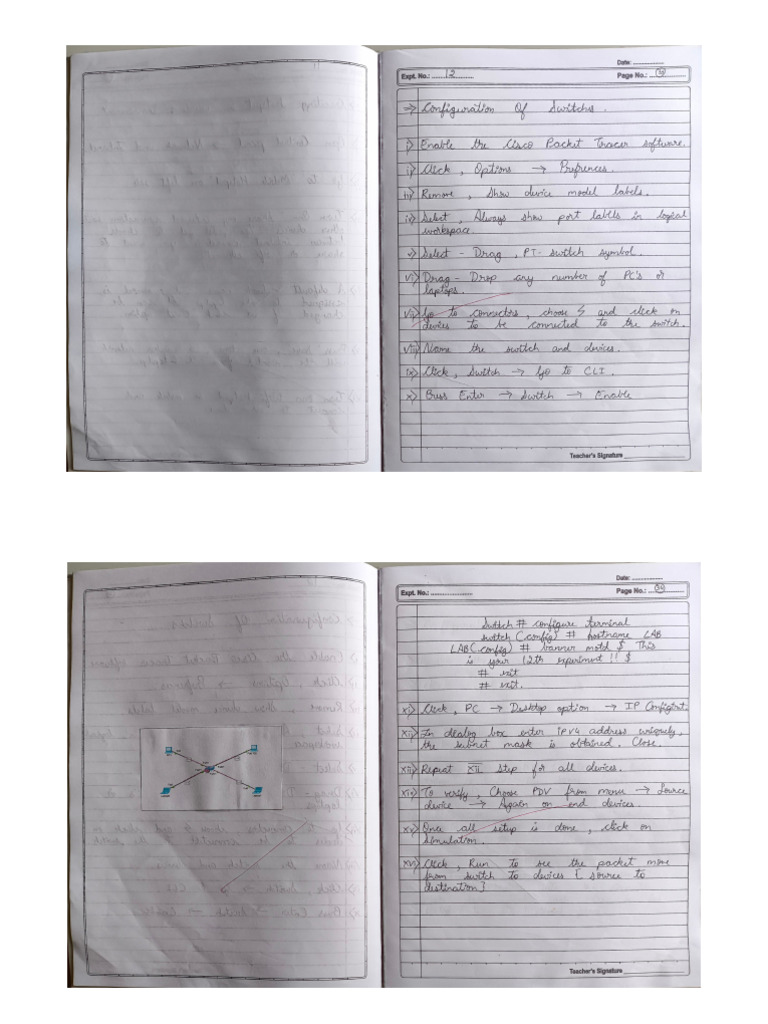 Date:
Expt. No.: 12
Page No.:
⇒ Configuration Of Switches.
i) Enable the Cisco Packet Tracer software.
ii) Click, Options → Prefrences.
iii) Remove, Show device model labels.
iv) Select, Always show port labels in logical
workspace.
v) Select - Drag, PT- switch symbol.
vi) Drag - Drop any number of PC's or
laptops.
vii) Go to connectors, choose and click on
devices to be connected to the switch.
viii) Name the switch and devices.
ix) Click, Switch → Go to CLI.
x) Press Enter → Switch → Enable
Teacher's Signature
Date:
Expt. No.:
Page No.:
Switch # configure terminal
switch (config) # hostname LAB
LAB(config) # banner motd $ This
is your 12th experiment !! $
# exit
# exit.
xi) Click, PC → Desktop option → IP Configint.
xii) In dialog box enter IPV4 address uniquely,
the subnet mask is obtained. Close.
xiii) Repeat XII step for all devices.
xiv) To verify, Choose PDV from menu → Source
device → Again on end devices.
xv) Once all setup is done, click on
Simulation.
xvi) Click, Run to see the packet move
from switch to devices [ source to
destination]
Teacher's Signature